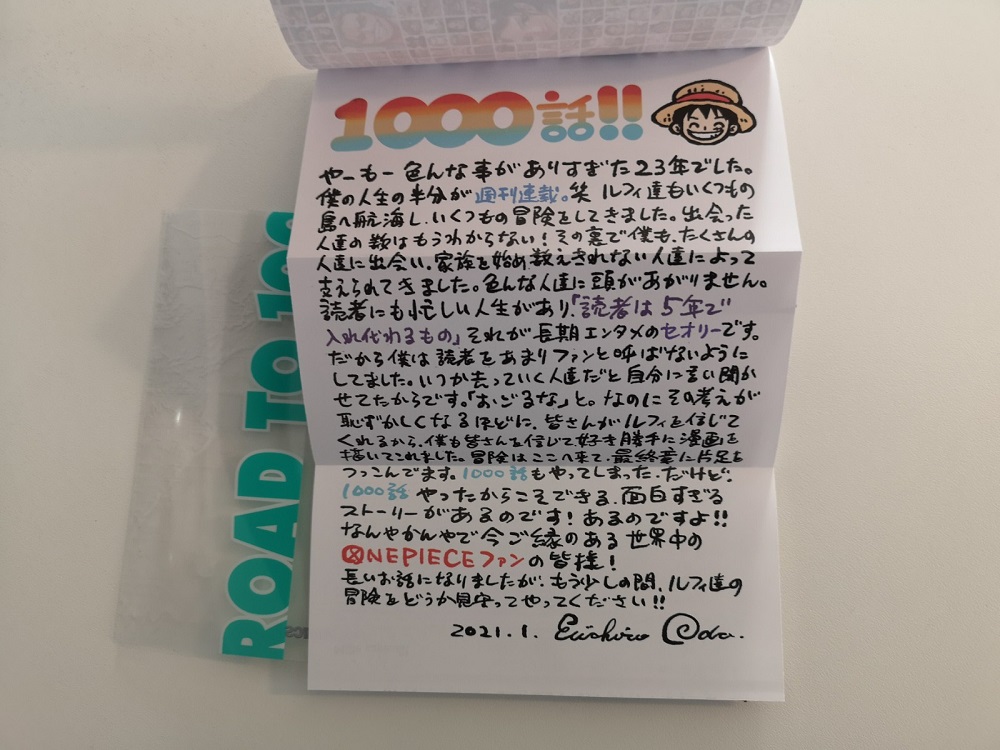 1000話!!
やーもー色んな事がありすぎた23年でした。
僕の人生の半分が週刊連載。笑 ルフィ達もいくつもの
島へ航海し、いくつもの冒険をしてきました。出会った
人達の数はもうわからない！その裏で僕も、たくさんの
人達に出会い、家族を始め数えきれない人達によって
支えられてきました。色んな人達に頭があがりません。
読者にも忙しい人生があり、「読者は5年で
入れ代わるもの」それが長期エンタメのセオリーです。
だから僕は読者をあまりファンと呼ばないように
してました。いつか去っていく人達だと自分に言い聞か
せてたからです。「おごるな」と。なのにその考えが
恥ずかしくなるほどに、皆さんがルフィを信じて
くれるから、僕も皆さんを信じて好き勝手に漫画を
描いてこれました。冒険はここへ来て、最終章に片足を
つっこんでます。1000話もやってしまった、だけど、
1000話やったからこそできる、面白すぎる
ストーリーがあるのです！あるのですよ!!
なんやかんやで今ご縁のある世界中の
ONEPIECEファンの皆様！
長いお話になりましたが、もう少しの間、ルフィ達の
冒険をどうか見守ってやってください!!
2021.1. Eiichiro Oda.
ROAD TO 100